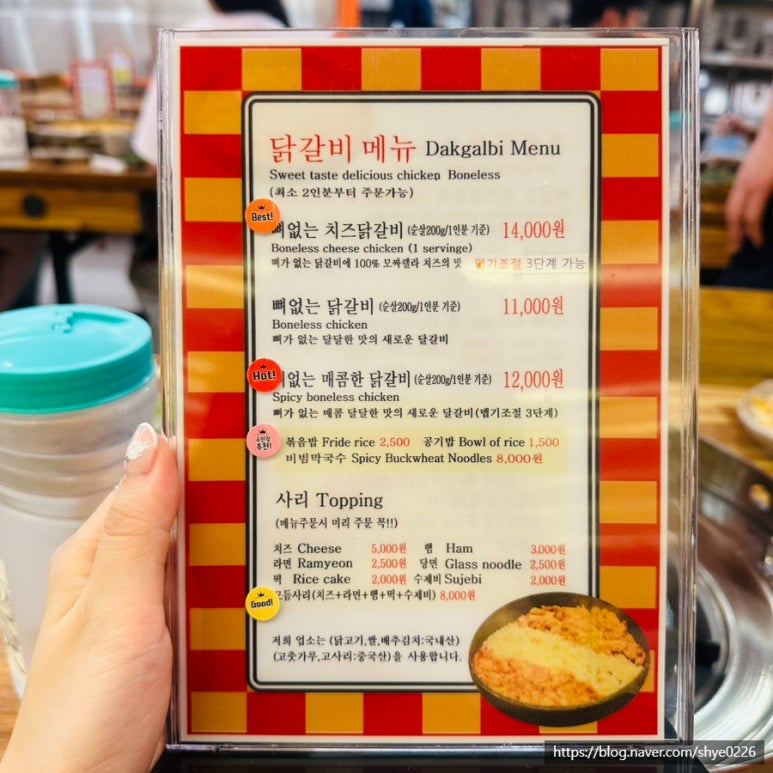 닭갈비 메뉴 Dakgalbi Menu
Sweet taste delicious chicken Boneless
(최소 2인분부터 주문가능)
Best!
뼈없는 치즈닭갈비 (순살200g/1인분 기준) 14,000원
Boneless cheese chicken (1 servinge)
뼈가 없는 닭갈비에 100% 모짜렐라 치즈의 맛 맵기조절 3단계 가능
뼈없는 닭갈비 (순살200g/1인분 기준) 11,000원
Boneless chicken
뼈가 없는 달달한 맛의 새로운 닭갈비
Hot!
뼈없는 매콤한 닭갈비 (순살200g/1인분 기준) 12,000원
Spicy boneless chicken
뼈가 없는 매콤 달달한 맛의 새로운 닭갈비(맵기조절 3단계)
볶음밥 Fride rice 2,500 공기밥 Bowl of rice 1,500
비빔막국수 Spicy Buckwheat Noodles 8,000원
사리 Topping
(메뉴주문시 미리 주문 꼭!!)
치즈 Cheese 5,000원 햄 Ham 3,000원
라면 Ramyeon 2,500원 당면 Glass noodle 2,500원
떡 Rice cake 2,000원 수제비 Sujebi 2,000원
Good!
모듬사리(치즈+라면+햄+떡+수제비) 8,000원
저희 업소는 (닭고기,쌀,배추김치:국내산)
(고춧가루,고사리:중국산)을 사용합니다.
https://blog.naver.com/shye0226